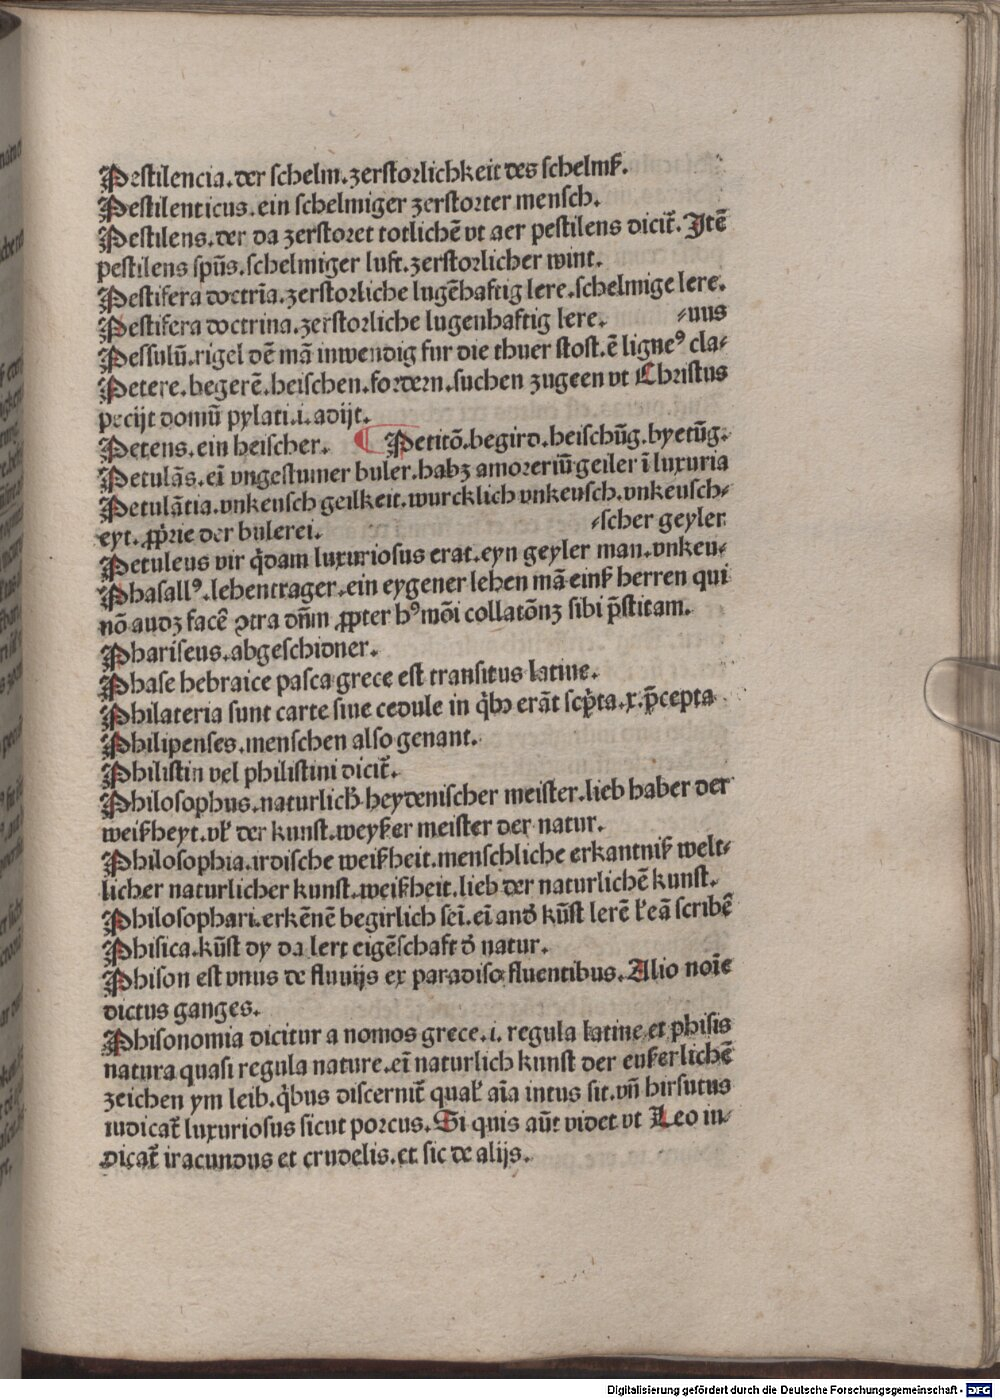 Pestilencia.der schelm.zerstorlichkeit des schelmß.
Pestilenticus.ein schelmiger zerstorter mensch.
Pestilens.der da zerstoret totlichē vt aer pestilens dicit̄. Itē
pestilens spūs.schelmiger luft.zerstorlicher wint.
Pestifera doctrīa.zerstorliche lugēhaftig lere.schelmige lere.
Pestifera doctrina.zerstorliche lugenhaftig lere. ⸗uus
Pessulū.rigel dē mā inwendig fur die thuer stost.ē ligneꝰ cla⸗
Petere.begerē.heischen.fordern.suchen zugeen vt Christus
pecijt domū pylati.i.adijt.
Petens.ein heischer. ¶ Petitō.begird.heischūg.byetūg.
Petulās.eī vngestumer buler.habꝫ amoreriū geiler ī luxuria
Petulātia.vnkeusch geilkeit.wurcklich vnkeusch.vnkeusch⸗
eyt.ꝓprie der bulerei. ⸗scher geyler
Petuleus vir q̄dam luxuriosus erat.eyn geyler man.vnkeu⸗
Phasallꝰ.lehentrager.ein eygener lehen mā einß herren qui
nō audꝫ facē ꝯtra dn̄m ꝓpter hꝰmōi collatōnꝫ sibi p̄stitam.
Phariseus.abgeschidner.
Phase hebraice pasca grece est transitus latine.
Philateria sunt carte siue cedule in q̇bꝫ erāt scp̄ta.x.p̄cepta
Philipenses.menschen also genant.
Philistin vel philistini dicit̄.
Philosophus.naturlich̄ heydenischer meister.lieb haber der
weißheyt.vl̓ der kunst.weyßer meister der natur.
Philosophia.irdische weißheit.menschliche erkantniß welt⸗
licher naturlicher kunst.weißheit.lieb der naturlichē kunst.
Philosophari.erkēnē begirlich seī.eī and̄ kūst lerē l̓ eā scribē
Phisica.kūst dy da lert eigēschaft d̄ natur.
Phison est vnus de fluuijs ex paradiso fluentibus.Alio noīe
dictus ganges.
Phisonomia dicitur a nomos grece.i.regula latine et phisis
natura quasi regula nature.eī naturlich kunst der eußerlichē
zeichen ym leib.q̇bus discernit̄ qual̓ aīa intus sit.vn̄ hirsutus
iudicat̄ luxuriosus sicut porcus.Si quis aūt videt vt Leo in⸗
dicat̄ iracundus et crudelis.et sic de alijs.
Digitalisierung gefördert durch die Deutsche Forschungsgemeinschaft - DFG